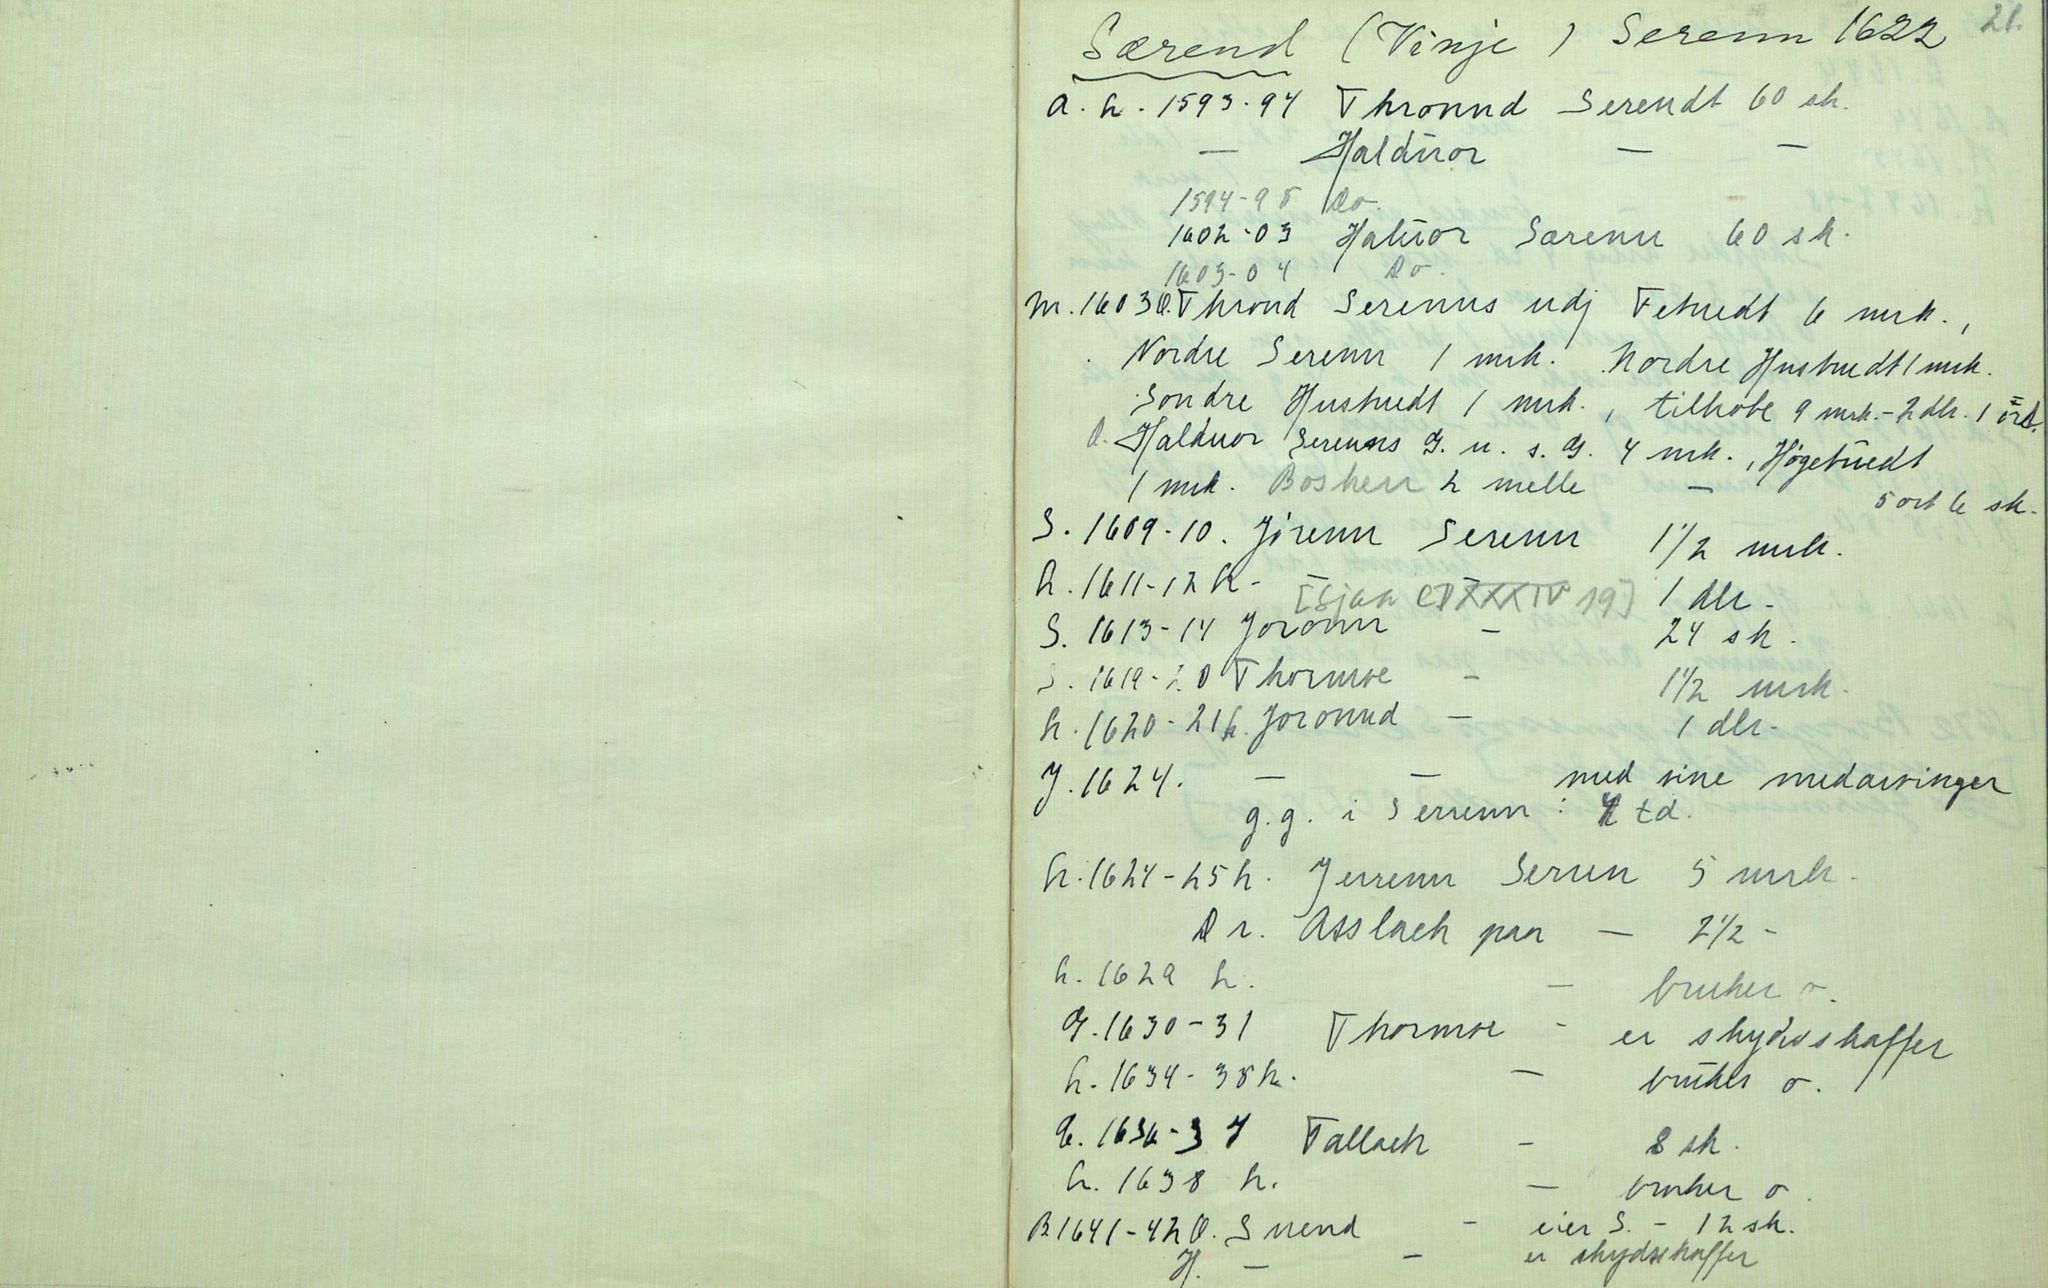 21.
Særend (Vinje) Serenn 1622
A. h. 1593-94 Thronnd Serendt 60 sk.
— Halduor — —
1594-95 Do.
1602-03 Haluor Særenn 60 sk.
1603-04 Do.
M. 1603 O. Thrond Serenns udj Fetuedt 6 mrk.,
Nordre Serenn 1 mrk. Nordre Hustuedt 1 mrk.
Sondre Hustuedt 1 mrk., tilhobe 9 mrk. - 2 dlr. 1 ort.
O. Halduor Serenns G. u. s. G. 4 mrk., Høgetuedt
1 mrk. Bosherr 2 melle — 5 ort 6 sk.
S. 1609-10. Jörenn Serenn 1 1/2 mrk.
h. 1611-12 h. - [Sjaa 19] 1 dlr.
S. 1613-14 Joronn — 24 sk.
S. 1619-20 Thormoe - 1 1/2 mrk.
h. 1620-21 h. Joronnd — 1 dlr.
J. 1624. — — med sine medarvinger
g. g. i Serrenn : td.
h. 1624-25 h. Jerrenn Serren 5 mrk.
Dr. Asslach paa — 2 1/2 -
h. 1629 h. — bruker o.
G. 1630-31 Thormoe - er skydsskaffer
h. 1634-35 h. — bruker o.
1636-37 Tallach - 8 sk.
h. 1638 h. — bruker o.
B. 1641-42 O. Suend - eier S. - 12 sk.
H. — — er skydsskaffer